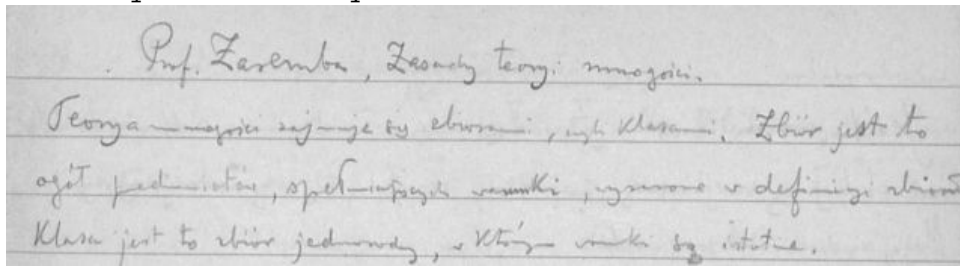 Prof. Zaremba, Zasady teoryi mnogości.
Teorya mnogości zajmuje się zbiorami, czyli klasami. Zbiór jest to
ogół przedmiotów, spełniających warunki, wyrażone w definicyi zbioru
Klasa jest to zbiór jednorodny, w którym są istotne.